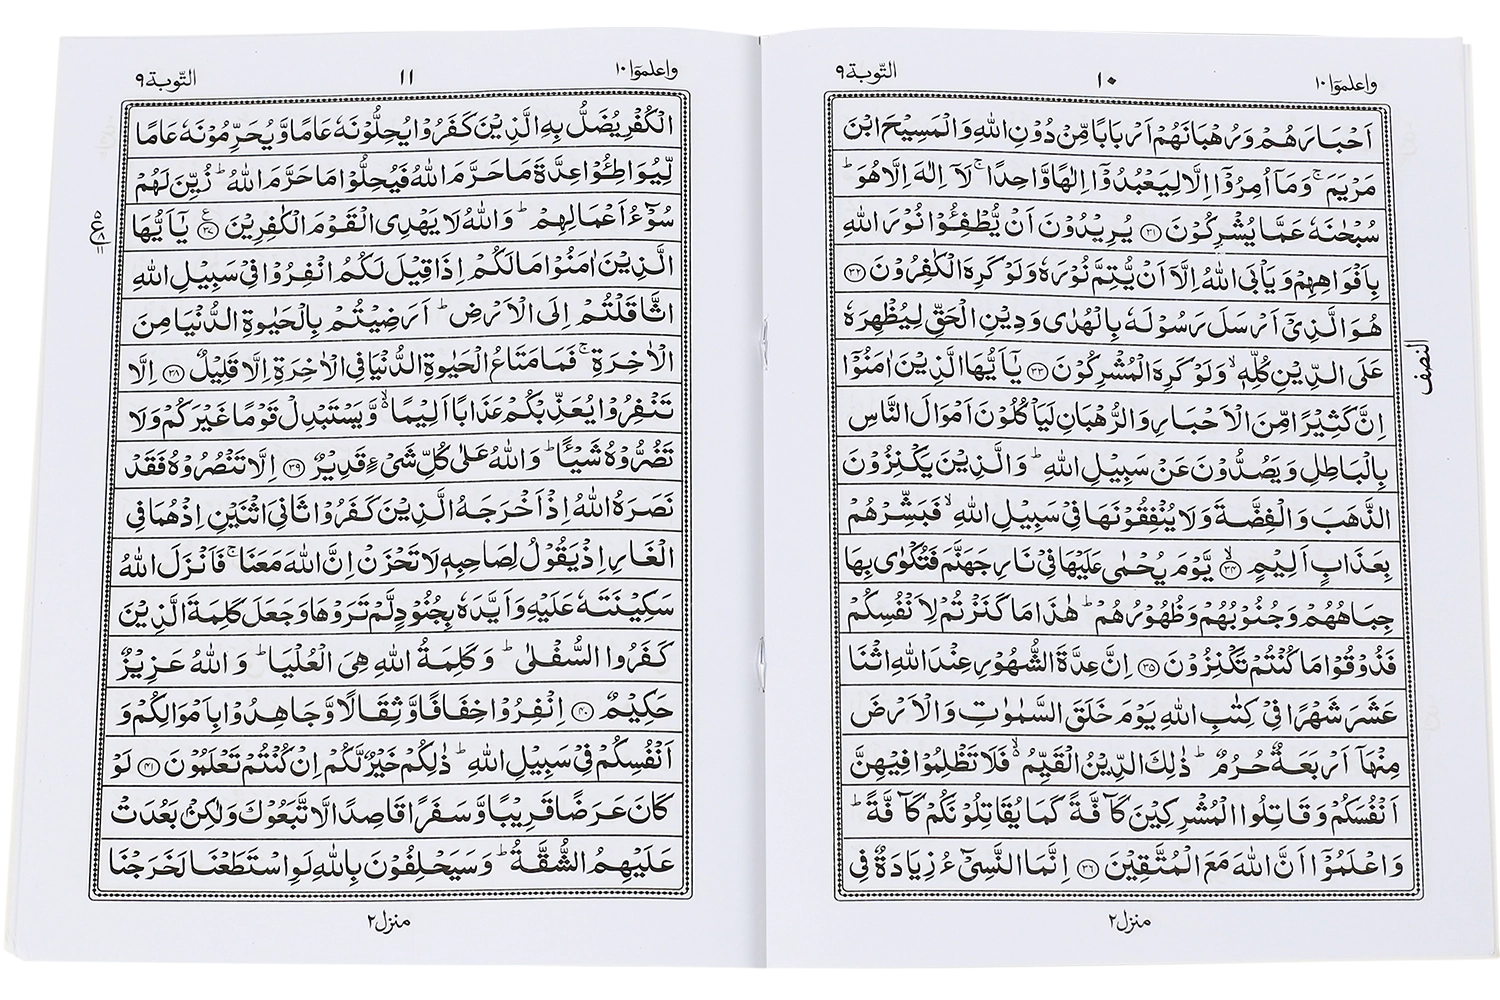 واعلموٓا ١٠
١٠
التّوبة ٩
اَحْبَارَهُمْ وَرُهْبَانَهُمْ اَرْبَابًا مِّنْ دُوْنِ اللّٰهِ وَالْمَسِيْحَ ابْنَ
مَرْيَمَ ۚ وَمَاۤ اُمِرُوْۤا اِلَّا لِيَعْبُدُوْۤا اِلٰهًا وَّاحِدًا ۚ لَاۤ اِلٰهَ اِلَّا هُوَ ؕ
سُبْحٰنَهٗ عَمَّا يُشْرِكُوْنَ ﴿٣١﴾ يُرِيْدُوْنَ اَنْ يُّطْفِـُٔوْا نُوْرَ اللّٰهِ
بِاَفْوَاهِهِمْ وَيَاْبَى اللّٰهُ اِلَّاۤ اَنْ يُّتِمَّ نُوْرَهٗ وَلَوْ كَرِهَ الْكٰفِرُوْنَ ﴿٣٢﴾
هُوَ الَّذِيْۤ اَرْسَلَ رَسُوْلَهٗ بِالْهُدٰى وَدِيْنِ الْحَقِّ لِيُظْهِرَهٗ
عَلَى الدِّيْنِ كُلِّهٖ ۙ وَلَوْ كَرِهَ الْمُشْرِكُوْنَ ﴿٣٣﴾ يٰۤاَيُّهَا الَّذِيْنَ اٰمَنُوْۤا
النصف
اِنَّ كَثِيْرًا مِّنَ الْاَحْبَارِ وَالرُّهْبَانِ لَيَاْكُلُوْنَ اَمْوَالَ النَّاسِ
بِالْبَاطِلِ وَيَصُدُّوْنَ عَنْ سَبِيْلِ اللّٰهِ ؕ وَالَّذِيْنَ يَكْنِزُوْنَ
الذَّهَبَ وَالْفِضَّةَ وَلَا يُنْفِقُوْنَهَا فِيْ سَبِيْلِ اللّٰهِ ۙ فَبَشِّرْهُمْ
بِعَذَابٍ اَلِيْمٍ ﴿٣٤﴾ يَّوْمَ يُحْمٰى عَلَيْهَا فِيْ نَارِ جَهَنَّمَ فَتُكْوٰى بِهَا
جِبَاهُهُمْ وَجُنُوْبُهُمْ وَظُهُوْرُهُمْ ؕ هٰذَا مَا كَنَزْتُمْ لِاَنْفُسِكُمْ
فَذُوْقُوْا مَا كُنْتُمْ تَكْنِزُوْنَ ﴿٣٥﴾ اِنَّ عِدَّةَ الشُّهُوْرِ عِنْدَ اللّٰهِ اثْنَا
عَشَرَ شَهْرًا فِيْ كِتٰبِ اللّٰهِ يَوْمَ خَلَقَ السَّمٰوٰتِ وَالْاَرْضَ
مِنْهَاۤ اَرْبَعَةٌ حُرُمٌ ؕ ذٰلِكَ الدِّيْنُ الْقَيِّمُ ۙ فَلَا تَظْلِمُوْا فِيْهِنَّ
اَنْفُسَكُمْ وَقَاتِلُوا الْمُشْرِكِيْنَ كَآفَّةً كَمَا يُقَاتِلُوْنَكُمْ كَآفَّةً ؕ
وَاعْلَمُوْۤا اَنَّ اللّٰهَ مَعَ الْمُتَّقِيْنَ ﴿٣٦﴾ اِنَّمَا النَّسِيْٓءُ زِيَادَةٌ فِي
منزل ٢
واعلموٓا ١٠
١١
التّوبة ٩
الْكُفْرِ يُضَلُّ بِهِ الَّذِيْنَ كَفَرُوْا يُحِلُّوْنَهٗ عَامًا وَّيُحَرِّمُوْنَهٗ عَامًا
لِّيُوَاطِـُٔوْا عِدَّةَ مَا حَرَّمَ اللّٰهُ فَيُحِلُّوْا مَا حَرَّمَ اللّٰهُ ؕ زُيِّنَ لَهُمْ
سُوْٓءُ اَعْمَالِهِمْ ؕ وَاللّٰهُ لَا يَهْدِى الْقَوْمَ الْكٰفِرِيْنَ ﴿٣٧﴾ يٰۤاَيُّهَا
٥ ع ٨ ١١
الَّذِيْنَ اٰمَنُوْا مَا لَكُمْ اِذَا قِيْلَ لَكُمُ انْفِرُوْا فِيْ سَبِيْلِ اللّٰهِ
اثَّاقَلْتُمْ اِلَى الْاَرْضِ ؕ اَرَضِيْتُمْ بِالْحَيٰوةِ الدُّنْيَا مِنَ
الْاٰخِرَةِ ۚ فَمَا مَتَاعُ الْحَيٰوةِ الدُّنْيَا فِي الْاٰخِرَةِ اِلَّا قَلِيْلٌ ﴿٣٨﴾ اِلَّا
تَنْفِرُوْا يُعَذِّبْكُمْ عَذَابًا اَلِيْمًا ۙ وَّيَسْتَبْدِلْ قَوْمًا غَيْرَكُمْ وَلَا
تَضُرُّوْهُ شَيْـًٔا ؕ وَاللّٰهُ عَلٰى كُلِّ شَيْءٍ قَدِيْرٌ ﴿٣٩﴾ اِلَّا تَنْصُرُوْهُ فَقَدْ
نَصَرَهُ اللّٰهُ اِذْ اَخْرَجَهُ الَّذِيْنَ كَفَرُوْا ثَانِيَ اثْنَيْنِ اِذْ هُمَا فِي
الْغَارِ اِذْ يَقُوْلُ لِصَاحِبِهٖ لَا تَحْزَنْ اِنَّ اللّٰهَ مَعَنَا ۚ فَاَنْزَلَ اللّٰهُ
سَكِيْنَتَهٗ عَلَيْهِ وَاَيَّدَهٗ بِجُنُوْدٍ لَّمْ تَرَوْهَا وَجَعَلَ كَلِمَةَ الَّذِيْنَ
كَفَرُوا السُّفْلٰى ؕ وَكَلِمَةُ اللّٰهِ هِيَ الْعُلْيَا ؕ وَاللّٰهُ عَزِيْزٌ
حَكِيْمٌ ﴿٤٠﴾ اِنْفِرُوْا خِفَافًا وَّثِقَالًا وَّجَاهِدُوْا بِاَمْوَالِكُمْ وَ
اَنْفُسِكُمْ فِيْ سَبِيْلِ اللّٰهِ ؕ ذٰلِكُمْ خَيْرٌ لَّكُمْ اِنْ كُنْتُمْ تَعْلَمُوْنَ ﴿٤١﴾ لَوْ
كَانَ عَرَضًا قَرِيْبًا وَّسَفَرًا قَاصِدًا لَّاتَّبَعُوْكَ وَلٰكِنْۢ بَعُدَتْ
عَلَيْهِمُ الشُّقَّةُ ؕ وَسَيَحْلِفُوْنَ بِاللّٰهِ لَوِ اسْتَطَعْنَا لَخَرَجْنَا
منزل ٢